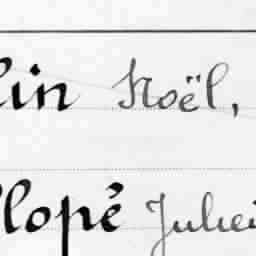 lin Noël,
lopé Julie